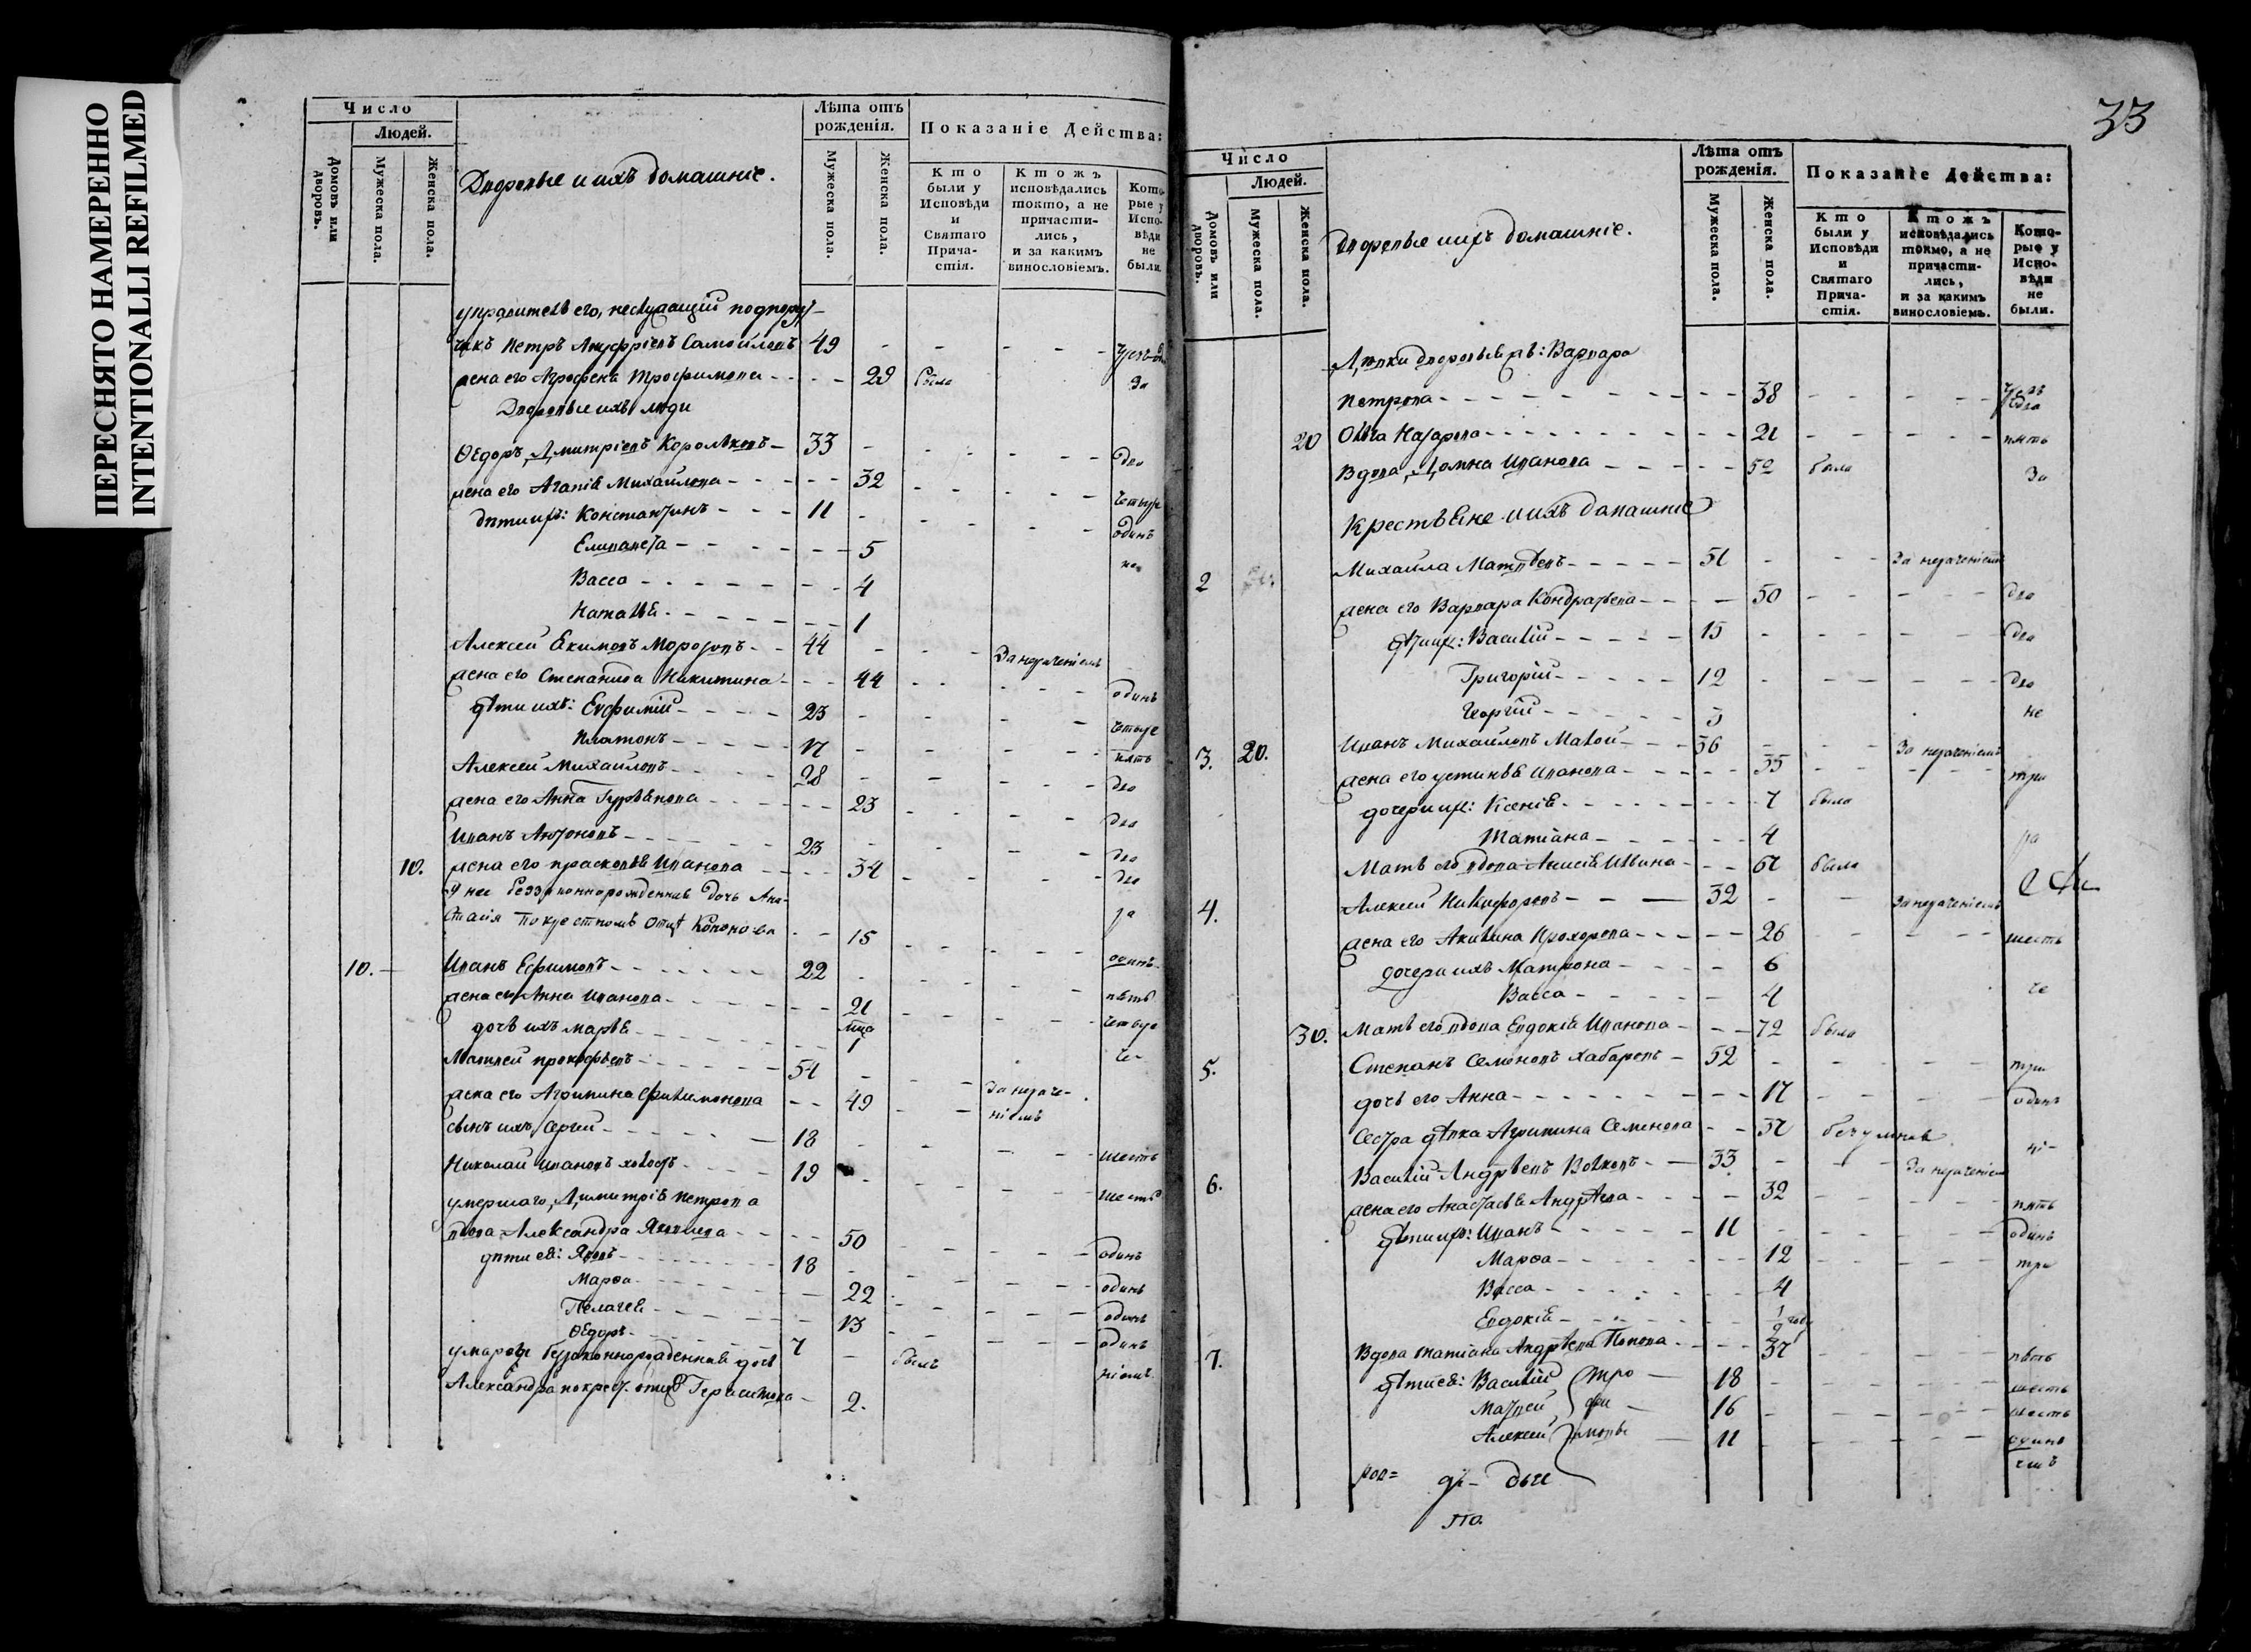 ПЕРЕСНЯТО НАМЕРЕННО
INTENTIONALLI REFILMED
Число
Людей.
Домовъ или дворовъ.
Мужеска пола.
Женска пола.
Дворовые и ихъ домашніе.
Лѣта отъ рожденія.
Мужеска пола.
Женска пола.
Показаніе Дѣйства:
Кто были у Исповѣди и Святаго Причастія.
Ктожъ исповѣдались токмо, а не причастились, и за какимъ винословіемъ.
Которые у Исповѣди не были.
управитель его, неслужащій подпору
чикъ Петръ Ануфріевъ Самойловъ 49
жена его Агрофена Трофимова 29 была За
Дворовые ихъ люди
Ѳедоръ Дмитріевъ Корольковъ 33 два
жена его Агапія Михайлова 32 четыре
дѣти ихъ: Константинъ 11 одинъ
Елисавета 5
Васса 4
Наталья 1
Алексей Екимовъ Морозовъ 44 За нераченіемъ
жена его Степанида Никитина 44 одинъ
дѣти ихъ: Евфимій 23 четыре
Платонъ 17 пять
Алексей Михайловъ 28 два
жена его Анна Гурьянова 23 два
Иванъ Антоновъ 23 два
10. жена его Прасковья Иванова 34 два
У нее беззаконнорожденная дочь Ана-
стасія по крестномъ отцѣ Кононова 15 одинъ
10. Иванъ Ефимовъ 22 пять
жена его Анна Иванова 21 четыре
дочь ихъ Марья 1
Матвей Прокофьевъ 54 За нераче-
жена его Агрипина Филимонова 49 ніемъ
сынъ ихъ Сергей 18 шесть
Николай Ивановъ 19 шесть
умершаго Димитрія Петрова
вдова Александра Яковлева 50 одинъ
дѣти ея: Яковъ 18 одинъ
Марѳа 22 одинъ
Пелагея 13 одинъ
Ѳедоръ 7 былъ
дочь
Александра по крест. отцѣ Герасимова 2.
33
Число
Людей.
Домовъ или дворовъ.
Мужеска пола.
Женска пола.
Дворовые и ихъ домашніе.
Лѣта отъ рожденія.
Мужеска пола.
Женска пола.
Показаніе Дѣйства:
Кто были у Исповѣди и Святаго Причастія.
Ктожъ исповѣдались токмо, а не причастились, и за какимъ винословіемъ.
Которые у Исповѣди не были.
Дѣвки дворовыя: Варвара
Петрова 38
20 Ольга Назарова 21 пять
Вдова Домна Иванова 52 была За
Крестьяне и ихъ домашніе
2 Михайла Матвѣевъ 51 За нераченіемъ
жена его Варвара Кондратьева 50 два
дѣти ихъ: Василій 15 два
Григорій 12 два
Георгій 3 не
3. 20. Иванъ Михайловъ 36 За нераченіемъ
жена его Устинья Иванова 35 три
дочери ихъ: Ксенія 7 была
Татіана 4 ра
Мать его вдова Анисія Ильина 61 была
4. Алексей Никифоровъ 32 За нераченіемъ
жена его Акилина Прохорова 26 шесть
дочери ихъ Матрона 6
Васса 4 че
30. Мать его вдова Евдокія Иванова 72 была
5. Степанъ Семеновъ Хабаровъ 52 три
дочь его Анна 17 одинъ
Сестра дѣвка Агрипина Семенова 37 безумная ні-
6. Василій Андрѣевъ Волковъ 33 За нераченіе
жена его Анастасья Андрѣева 32 пять
дѣти ихъ: Иванъ 11 одинъ
Марѳа 12 три
Васса 4
Евдокія 1/2 года
7. Вдова Татіана Андрѣева Попова 37 пять
дѣти ея: Василій Тро 18 шесть
Матвей фи 16 шесть
Алексей мовы 11 одинъ
емъ